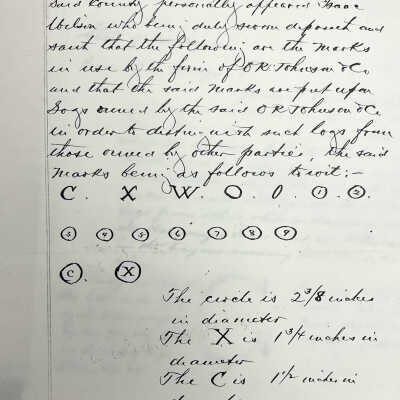 Said County personally appeared Isaac
Wilson who being duly sworn deposeth and
saith that the following are the marks
in use by the firm of O.R. Johnson & Co
and that the said Marks are put upon
Logs owned by the said O R Johnson & Co
in order to distinguish such logs from
those owned by other parties, the said
Marks being as follows to wit:-
C. X W. O 0. ①. ②.
③ ④ ⑤ ⑥ ⑦ ⑧ ⑨
Ⓒ. Ⓧ
The circle is 2 3/8 inches
in diameter
The X is 1 3/4 inches in
diameter
The C is 1 1/2 inches in